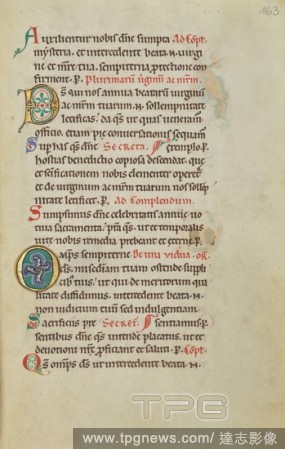 163
Auxilientur nobis dñe sumpta Ad Cōpl.
mysteria. et intercedente beata .N. uirgi
ne et m̄re tua. sempiterna ꝓtectione con
firment. P. Plurimarū uginū ac m̄rm.
Ds qui nos annua beatarū uirginū
ac m̄rm tuarum .N. sollempnitate
letificas. da qs ut quas ueneram
officio. etiam pie conuersationis sequam
exemplo. P.
Sup has qs dñe Secreta.
hostias benedictio copiosa descendat. que
et scificationem nobis clementer operet
et de uirginum ac m̄rm tuarum nos sollēp
nitate letificet. P. Ad Complendum.
Sumpsimus dñe celebritatis annue uo
tiua sacramenta. p̄ta qs. ut et temporalis
uite nobis remedia prebeant et eterne. P.
Omps sempiterne De una uidua. or
ds. misediam tuam ostende suppli
cibus tuis. ut qui de meritorum qua
litate diffidimus. intercedente beata .N.
non iudicium tuum sed indulgentiam
sentiamus. P.
Sacrificiis pre Secret.
sentibus dñe qs intende placatus. ut et
deuotioni nr̄e ꝓficiant et saluti. P. Cōpl.
Qs omps ds ut intercedente beata .N.
TPG
www.tpgnews.com/達志影像